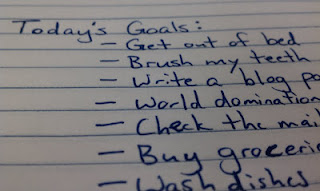 Today's Goals:
— Get out of bed
— Brush my teeth
— Write a blog
— World domination
— Check the
— Buy
— Wash dishes